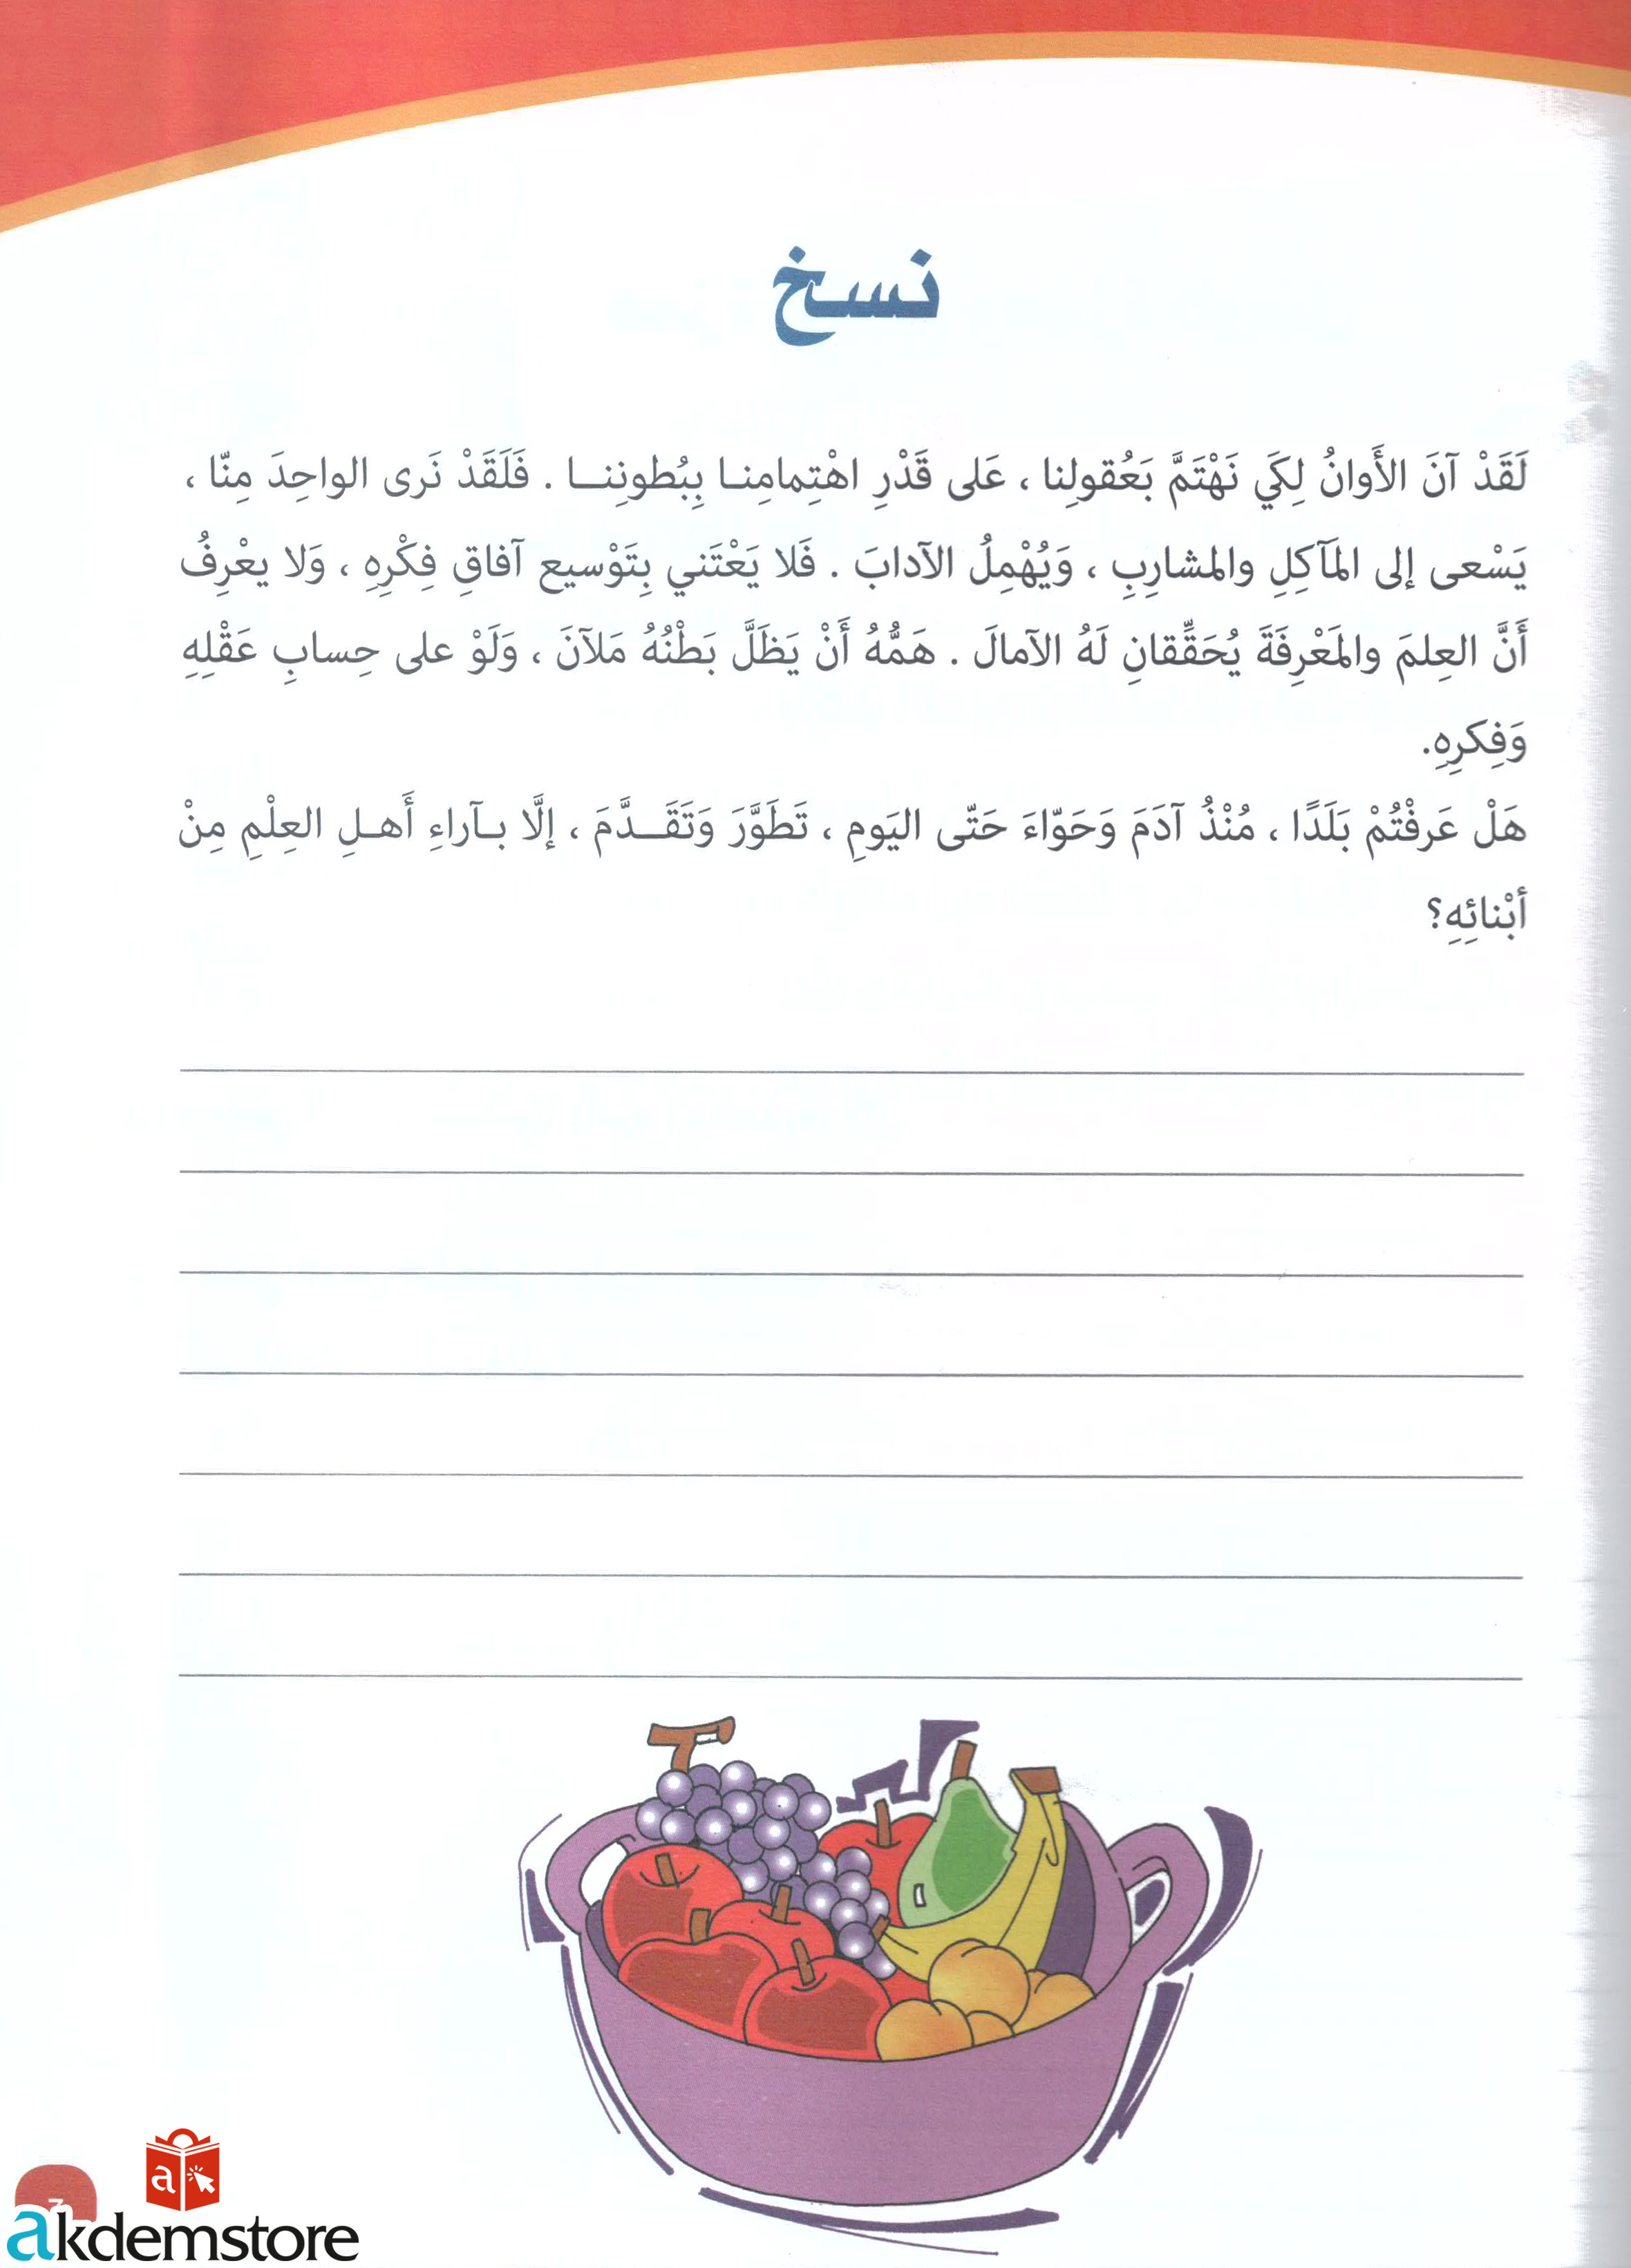 نسخ
لَقَدْ آنَ الأَوانُ لِكَي نَهْتَمَّ بَعُقولِنا ، عَلى قَدْرِ اهْتِمامِنـا بِبُطونِنــا . فَلَقَدْ نَرى الواحِدَ مِنّا ،
يَسْعى إلى المَآكِلِ والمشارِبِ ، وَيُهْمِلُ الآدابَ . فَلا يَعْتَني بِتَوْسيع آفاقِ فِكْرِهِ ، وَلا يعْرِفُ
أَنَّ العِلمَ والمَعْرِفَةَ يُحَقِّقانِ لَهُ الآمالَ . هَمُّهُ أَنْ يَظَلَّ بَطْنُهُ مَلآنَ ، وَلَوْ على حِسابِ عَقْلِهِ
وَفِكرِهِ.
هَلْ عَرفْتُمْ بَلَدًا ، مُنْذُ آدَمَ وَحَوّاءَ حَتّى اليَومِ ، تَطَوَّرَ وَتَقَــدَّمَ ، إلَّا بـآراءِ أَهـلِ العِلْمِ مِنْ
أبْنائِهِ؟
a
akdemstore